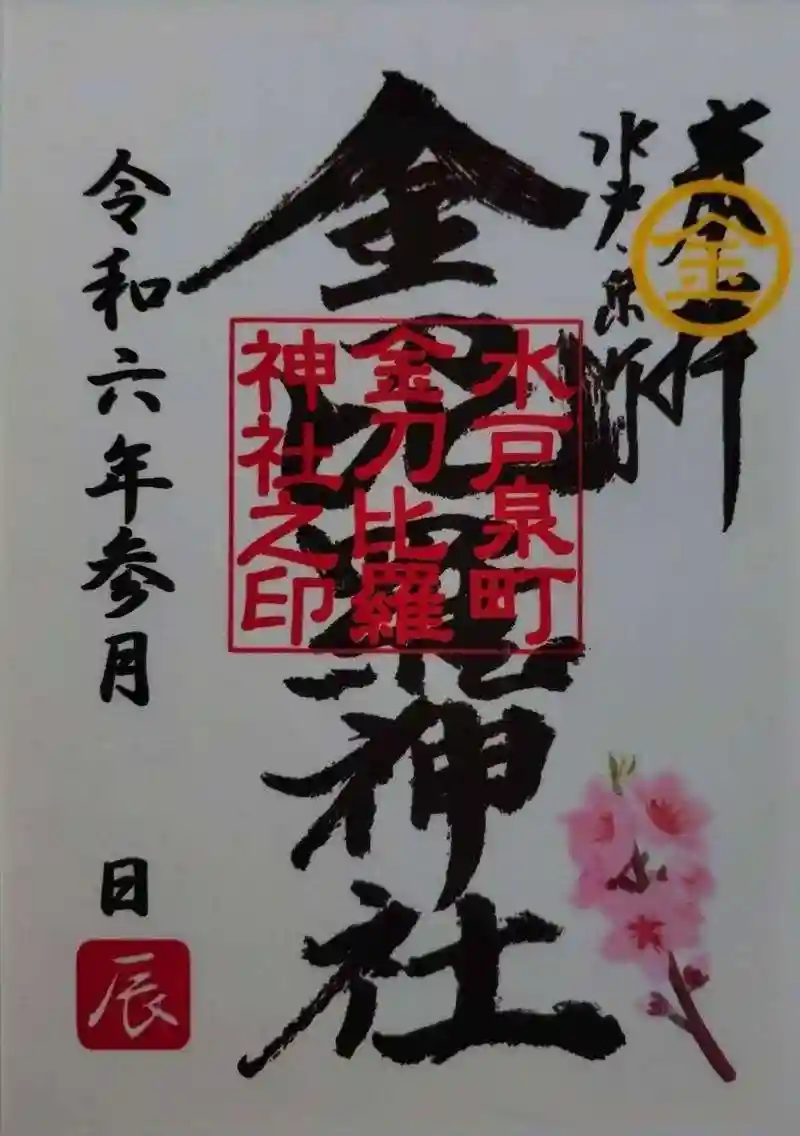 奉拝
金
水戸、泉町
金刀比羅神社
水戸泉町
金刀比羅
神社之印
令和六年参月　日
辰